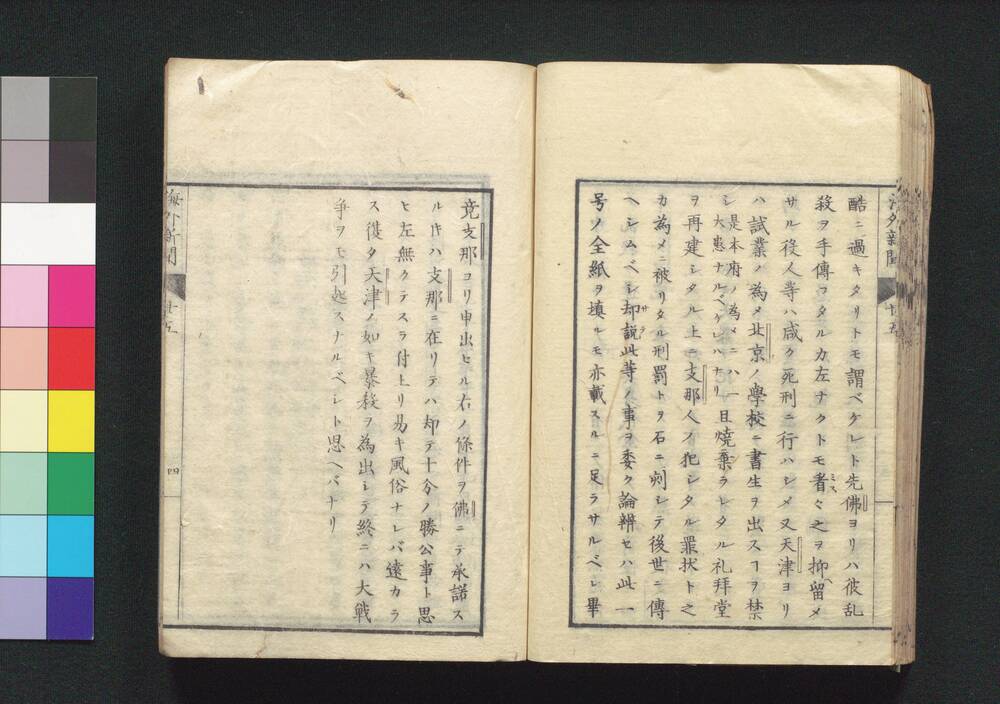 酷ニ過キタリトモ謂ベケレト先佛ヨリハ彼乱
殺ヲ手傳フタルカ左ナクトモ者々之ヲ抑留メ
ミス
サル役人等ハ咸ク死刑ニ行ハシメ又天津ヨリ
ハ試業ノ為メ北京ノ學校ニ書生ヲ出スヿヲ禁
シ是本府ノ為メニハ一
大患ナルベケレハナリ
且焼棄ラレタル礼拜堂
ヲ再建シタル上ニ支那人ノ犯シタル罪状ト之
カ為メニ被リタル刑罰トヲ石ニ刻シテ後世ニ傳
ヘシムベシ却説此等ノ事ヲ委ク論辨セハ此一
サテ
号ノ全紙ヲ填ルモ亦載スルニ足ラサルベシ畢
竟支那コリ申出ヒル右ノ條件ヲ佛ニテ承諾ス
ル𪜈ハ支那ニ在リテハ却テ十分ノ勝公事ト思
ヒ左無クテスラ付上リ易キ風俗ナレバ遠カラ
ス復タ天津ノ如キ暴殺ヲ為出シテ終ニハ大戦
争ヲモ引起スナルベシト思ヘバナリ
海外新聞
廿五
四